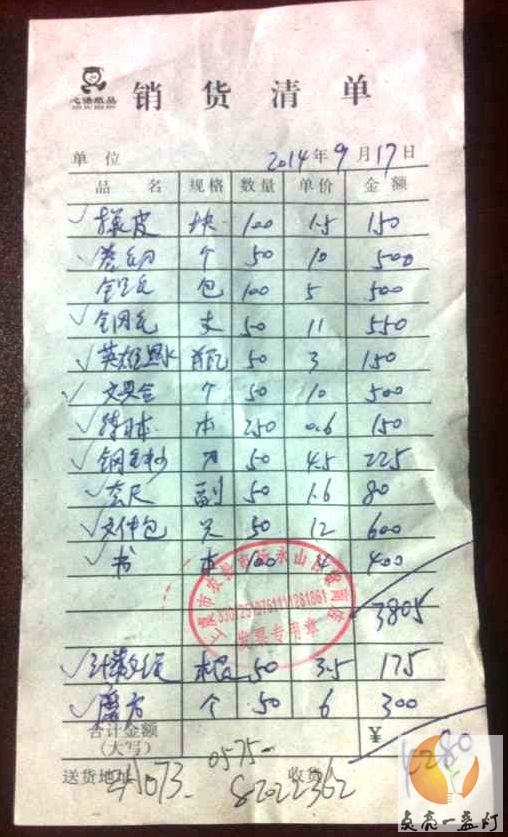 心语纸品
销货清单
单位 2014年9月17日
品名 规格 数量 单价 金额
✓橡皮 块 100 1.5 150
✓卷笔刀 个 50 10 500
铅笔 包 100 5 500
✓钢笔 支 50 11 550
✓英雄墨水 瓶 50 3 150
✓文具盒 个 50 10 500
✓ 本 250 0.6 150
✓ 50 4.5 225
✓套尺 副 50 1.6 80
✓文件包 只 50 12 600
✓书 本 100 4 400
发票专用章
3805
✓ 根 50 3.5 175
✓魔方 个 50 6 300
合计金额(大写) ¥ 80
送货地址 收货人
0575-
82022362
点亮一盏灯